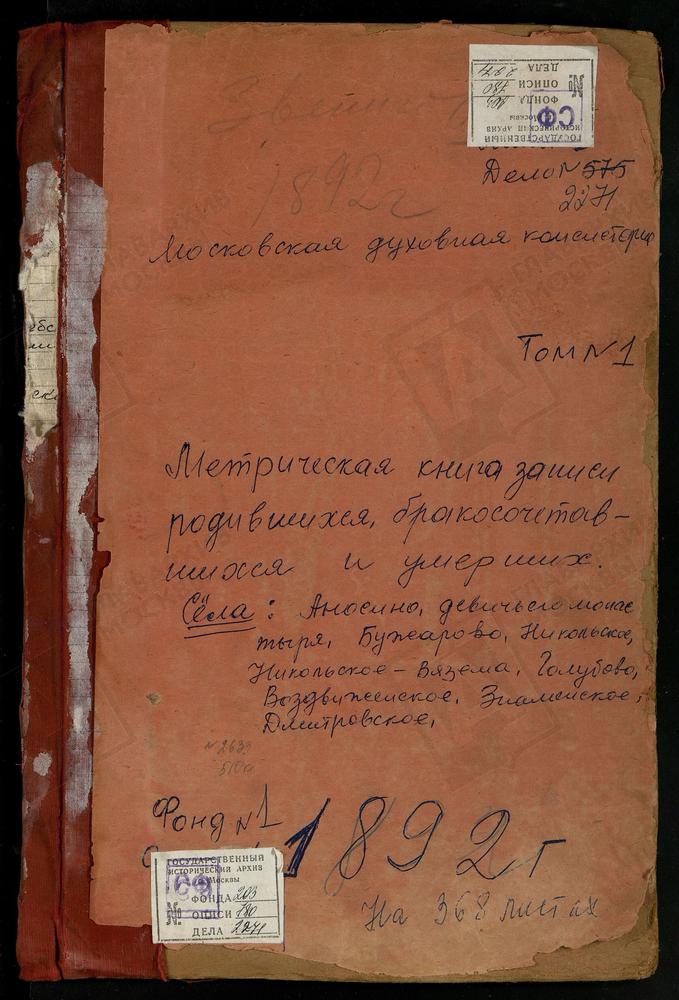 ГОСУДАРСТВЕННЫЙ
ИСТОРИЧЕСКИЙ АРХИВ
Москвы
СФ
ФОНДА 203
№ ОПИСИ 780
ДЕЛА 2271
1892 г
Дело N 575
2271
Московская духовная консистория
Том N 1
Метрическая книга записи
родившихся, бракосочетав-
шихся и умерших.
Сёла: Аносино, девичьего монас
тыря, Бужарово, Никольское,
Никольское - Вязема, Голубово,
Воздвиженское, Знаменское,
Дмитровское,
N 2639
510а
Фонд N 1
1892 г
На 368 листах
ГОСУДАРСТВЕННЫЙ
ИСТОРИЧЕСКИЙ АРХИВ
г. Москвы
СФ
ФОНДА 203
№ ОПИСИ 780
ДЕЛА 2271